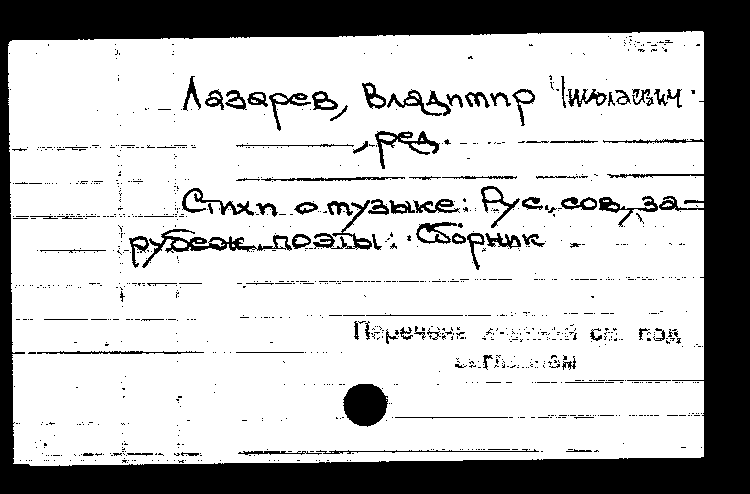 Лазарев, Владимир
, ред.
Стихи о музыке: Рус., сов., за-
рубеж. поэты: Сборник
Перечень см. под